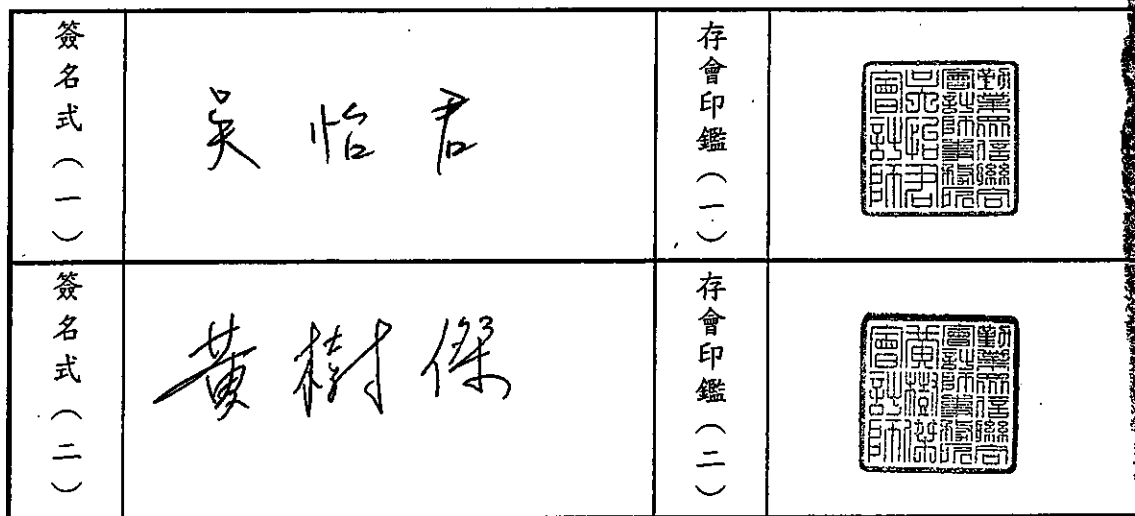 簽名式（一）
吳怡君
存會印鑑（一）
勤業眾信聯合
會計師事務所
吳怡君
會計師
簽名式（二）
黃樹傑
存會印鑑（二）
勤業眾信聯合
會計師事務所
黃樹傑
會計師